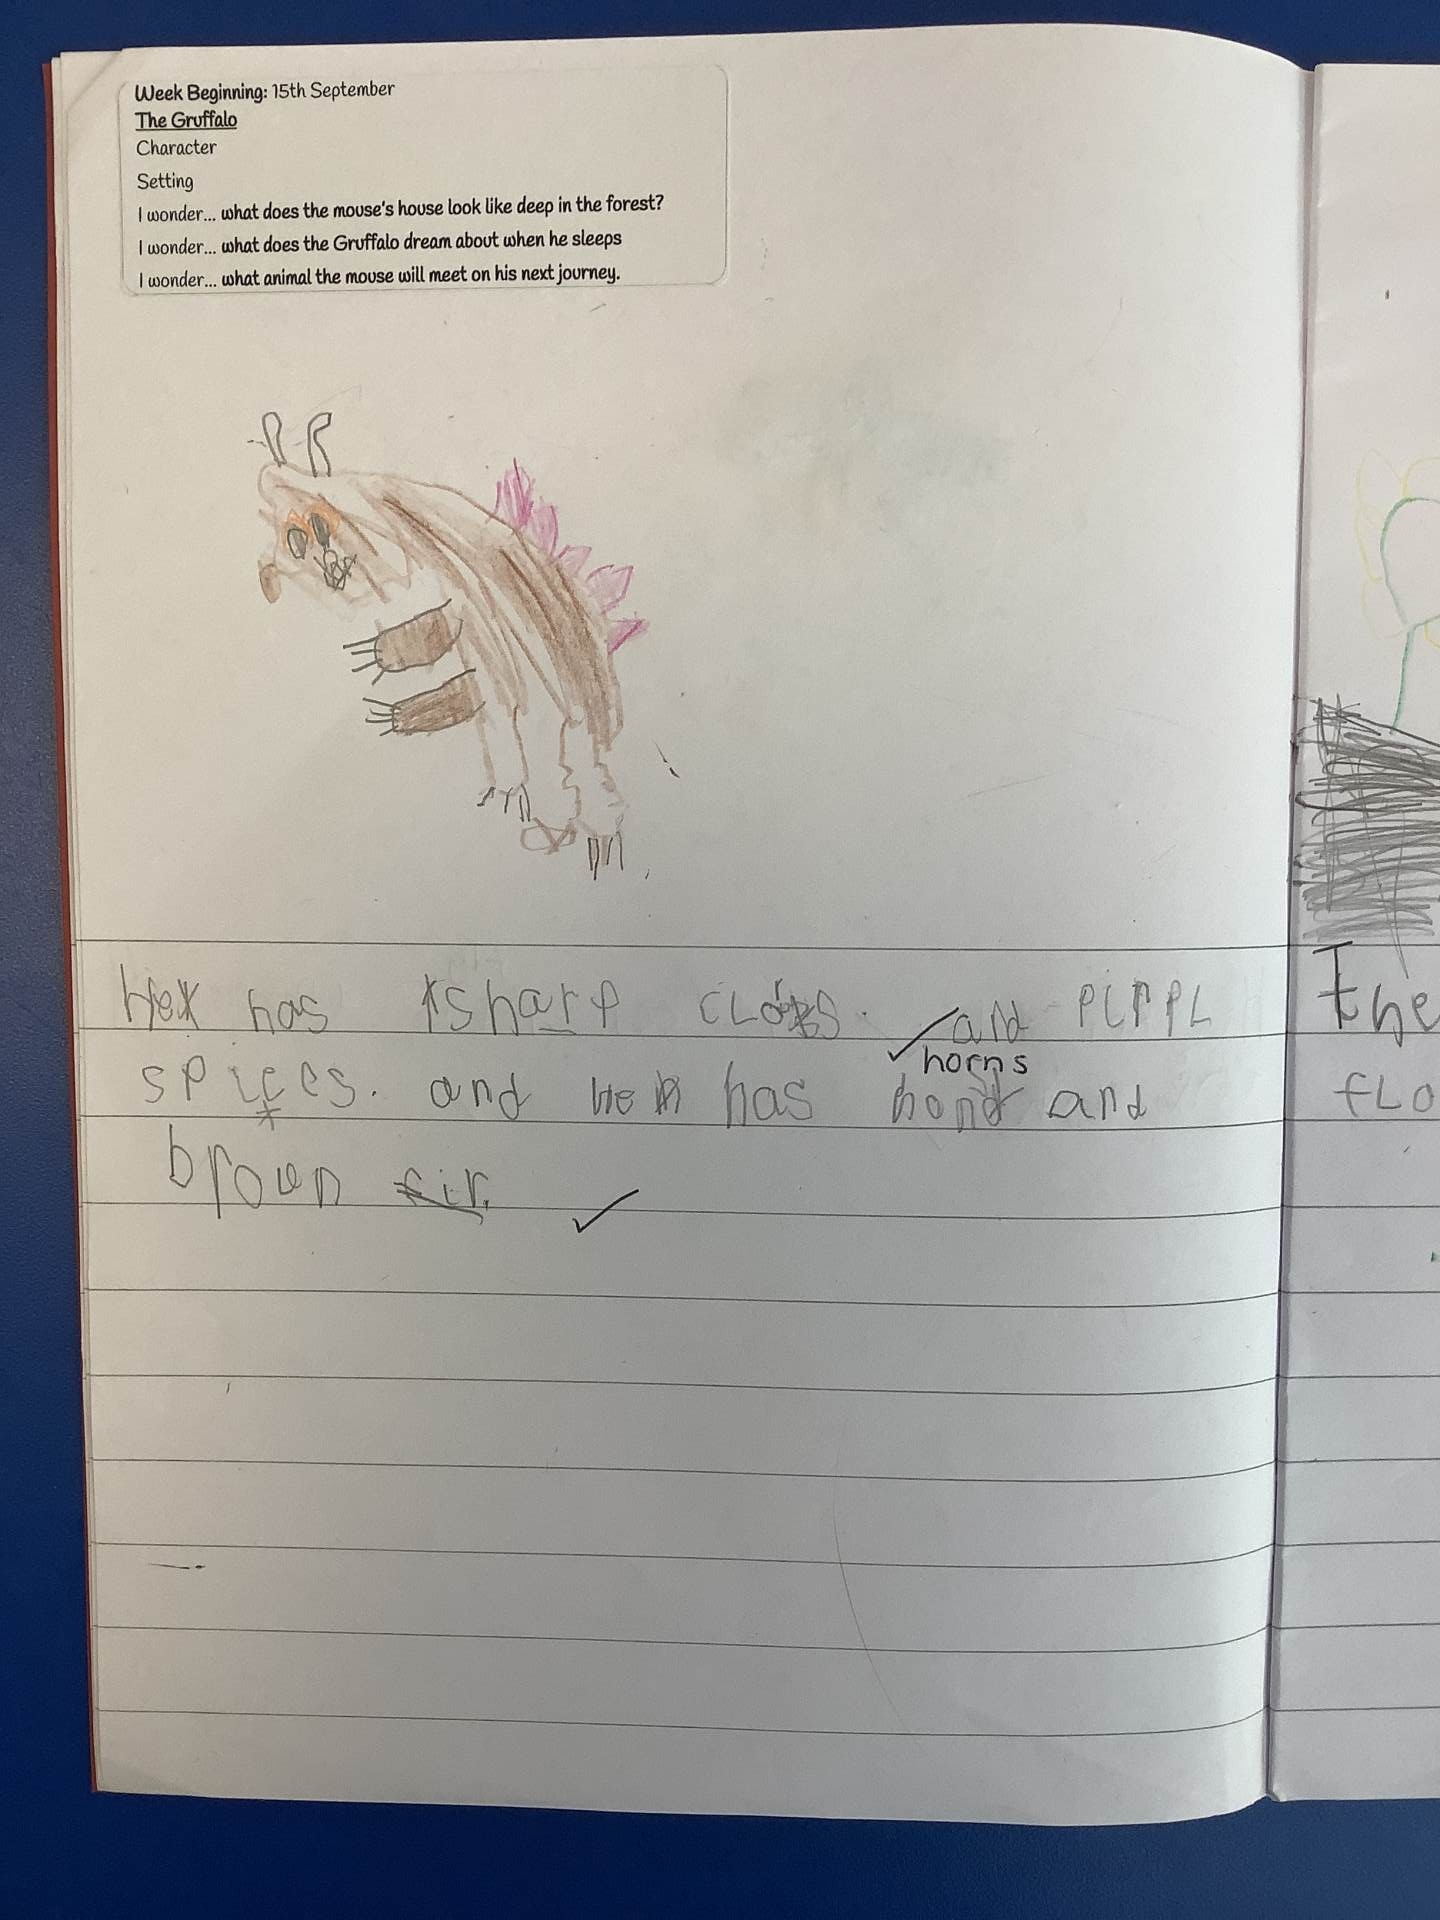 Week Beginning: 15th September
The Gruffalo
Character
Setting
I wonder... what does the mouse's house look like deep in the forest?
I wonder... what does the Gruffalo dream about when he sleeps
I wonder... what animal the mouse will meet on his next journey.
has sharp and PLPPL
horns
spices. and has and
brown fir.
The
fLo